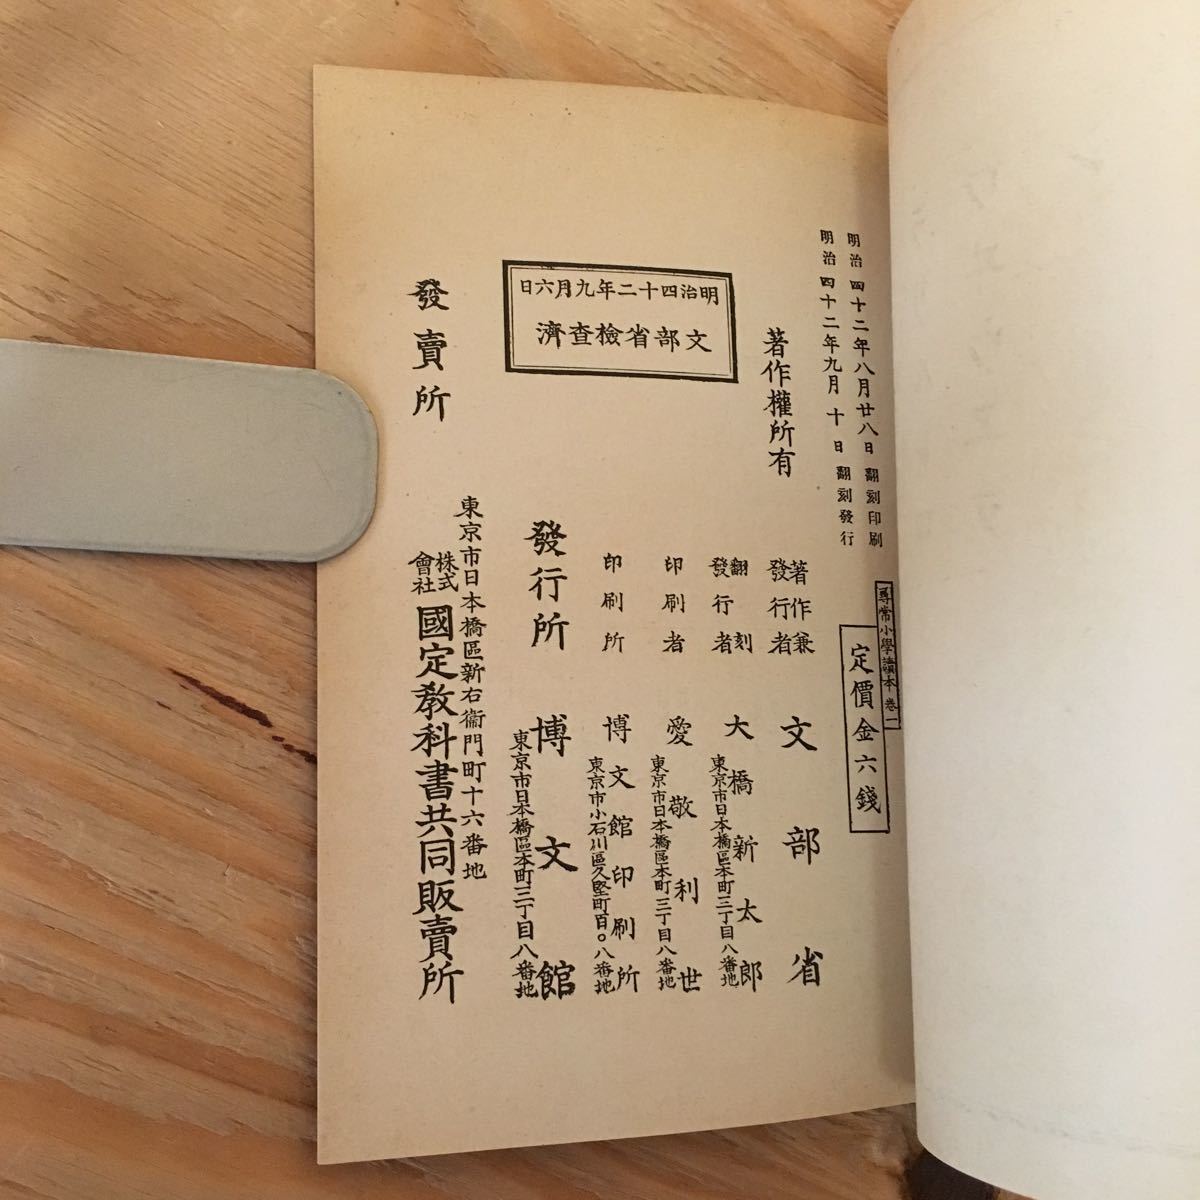 明治四十二年八月廿八日翻刻印刷
明治四十二年九月十日翻刻發行
尋常小學讀本卷一
定價金六錢
著作權所有
著作兼
發行者
文部省
翻刻
發行者
大橋新太郎
東京市日本橋區本町三丁目八番地
印刷者
愛敬利世
東京市日本橋區本町三丁目八番地
印刷所
博文館印刷所
東京市小石川區久堅町百〇八番地
明治四十二年九月六日
文部省檢查濟
發行所
博文館
東京市日本橋區本町三丁目八番地
發賣所
東京市日本橋區新右衞門町十六番地
株式
會社
國定敎科書共同販賣所